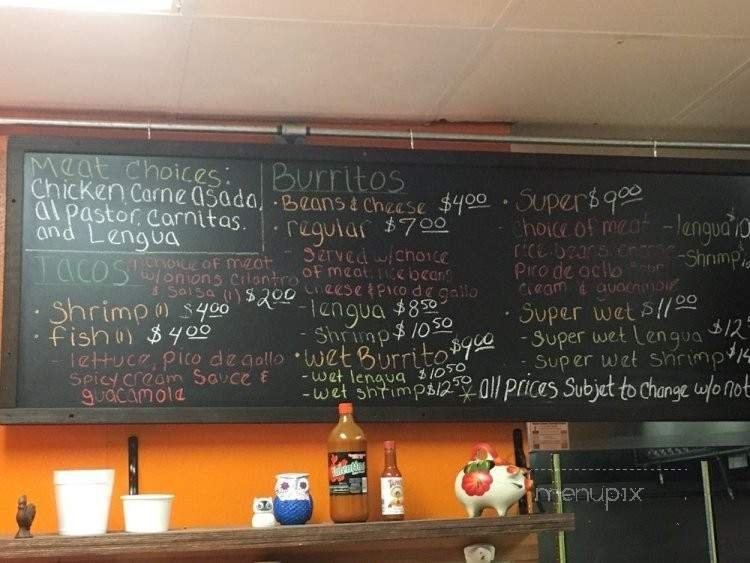 Meat Choices:
Chicken, Carne Asada,
al Pastor, Carnitas.
and Lengua
Tacos
choice of meat
w/onions cilantro
& Salsa (1) $2.00
• Shrimp (1) $4.00
• fish (1) $4.00
- lettuce, Pico de gallo
spicy cream Sauce &
guacamole
Burritos
• Beans & Cheese $4.00
• regular $7.00
- Served w/choice
of meat, rice beans
cheese & pico de gallo
- lengua $8.50
- Shrimp $10.50
• Wet Burrito $9.00
- wet lengua $10.50
- wet shrimp $12.50
• Super $9.00
- choice of meat
rice, beans, cheese
Pico de gallo
cream & guacamole
- lengua $10
- Shrimp
• Super wet $11.00
- Super wet Lengua $12
- Super wet Shrimp $14
* all prices Subjet to change w/o not
Valentina
menupix